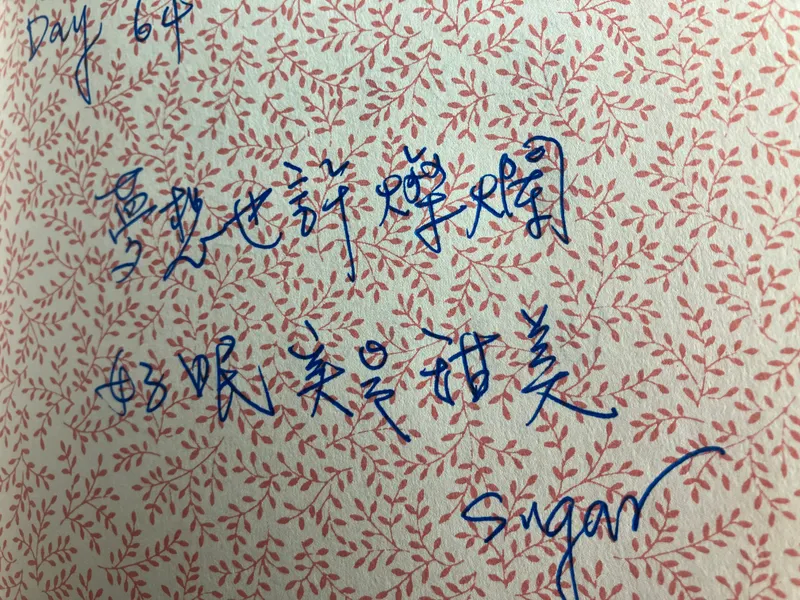 Day 64
夢想也許燦爛
好眠是甜美
sugar